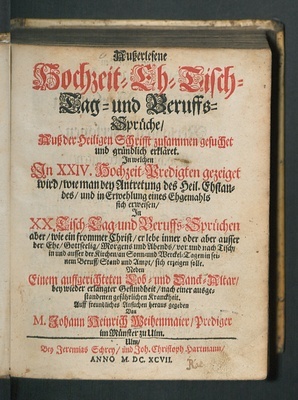 Außerlesene
Hochzeit-Eh-Tisch-
Tag- und Beruffs-
Sprüche/
Auß der Heiligen Schrifft zusammen gesuchet
und gründlich erkläret.
In welchen
In XXIV. Hochzeit-Predigten gezeiget
wird/ wie man bey Antrettung des Heil. Ehstan-
des/ und in Erwehlung eines Ehgemahls
sich erweisen/
In
XX. Tisch-Tag-und Beruffs-Sprüchen
aber/ wie ein frommer Christ/ er lebe inner oder aber ausser
der Ehe/ Gottselig/ Morgens und Abends/ vor und nach Tisch/
in und ausser der Kirchen/ an Sonn- und Werckel-Tagen in sei-
nem Beruff/ Stand und Ampt/ sich erzeigen solle.
Neben
Einem auffgerichteten Lob- und Danck-Altar/
bey wieder erlangter Gesundheit/ nach einer ausge-
standenen gefährlichen Kranckheit.
Auff freundliches Ansuchen heraus gegeben
Von
M. Johann Heinrich Weihenmaier/ Prediger
im Münster zu Ulm.
Ulm/
Bey Jeremias Schrey/ und Joh. Christoph Hartmann/
ANNO M. DC. XCVII.